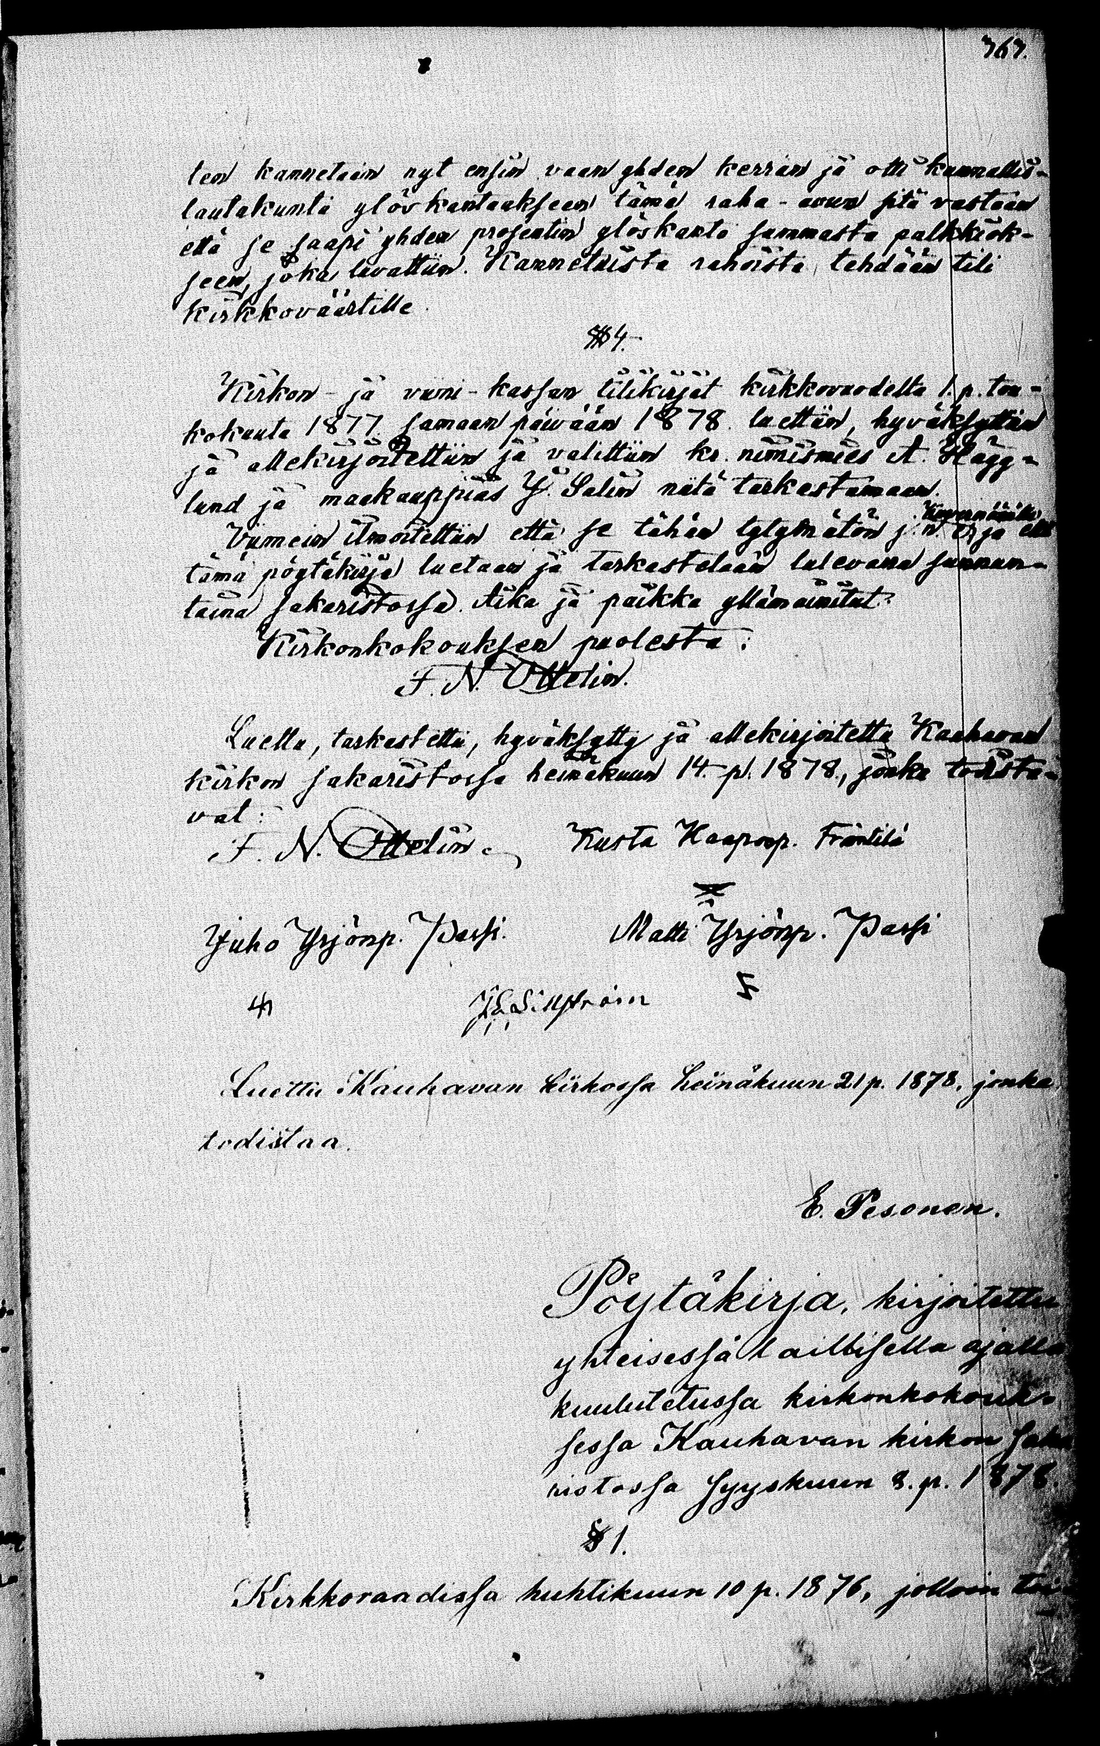 367.
ten kannetaan nyt ensin vaan yhden kerran ja otti kunnallis-
lautakunta ylöskantaakseen tämä raha-avun sitä vastaan
että se saapi yhden prosentin ylöskanto summasta palkkiok-
seen, joka luvattiin. Kannetuista rahoista tehdään tili
kirkkoväärtille.
§ 4.
Kirkon- ja viini-kassan tilikirjat kirkkovuodelta 1. p. tou-
kokuuta 1877 samaan päivään 1878 luettiin, hyväksyttiin
ja allekirjoitettiin ja valittiin kr. nimismies A. Hägg-
lund ja maakauppias J. Salin näitä tarkastamaan.
Viimein ilmoitettiin että se tähän tytymätön j. n. e. ja että
tämä pöytäkirja luetaan ja tarkastetaan tulevana sunnun-
taina sakaristossa. Aika ja paikka yllämainitut.
Kirkonkokouksen puolesta:
F. N. Ottelin.
Luettu, tarkastettu, hyväksytty ja allekirjoitettu Kauhavan
kirkon sakaristossa heinäkuun 14. p. 1878, jonka todista-
vat:
F. N. Ottelin. Kusta Haapoop. Främtilä
Juho Yrjönp. Passi. Matti Yrjönp. Passi
Luettu Kauhavan kirkossa heinäkuun 21 p. 1878, jonka
todistaa.
E. Pesonen.
Pöytäkirja, kirjoitettu
yhteisessä laillisella ajalla
kuulutetussa kirkonkokouk-
sessa Kauhavan kirkon saka
ristossa syyskuun 8. p. 1878.
§ 1.
Kirkkoraadissa huhtikuun 10 p. 1876, jolloin toi-